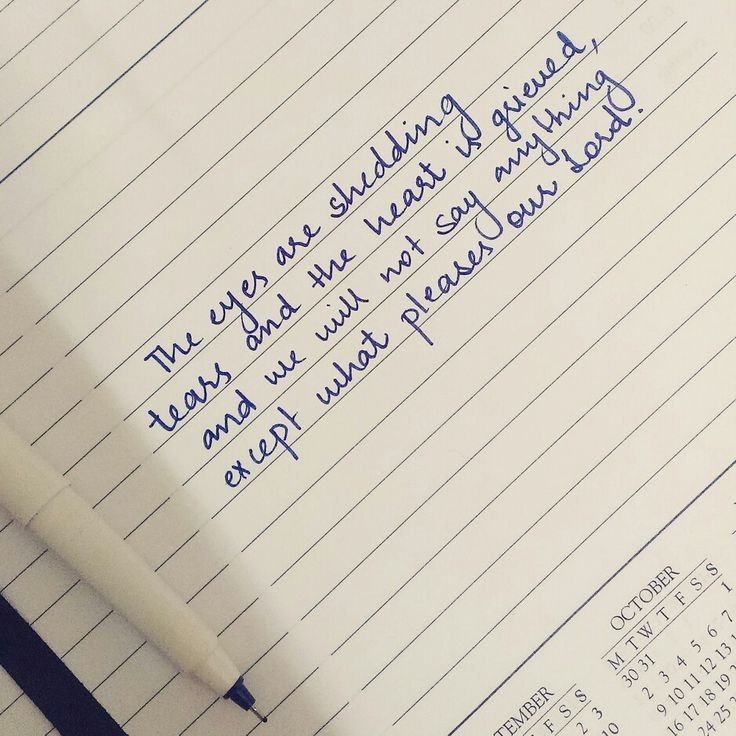 The eyes are shedding
tears and the heart is grieved,
and we will not say anything
except what pleases our Lord.
OCTOBER
M T W T F S S
30 31 1
2 3 4 5 6 7
9 10 11 12 13
16 17 18 19
24 25
TEMBER
F S S
2 3
10